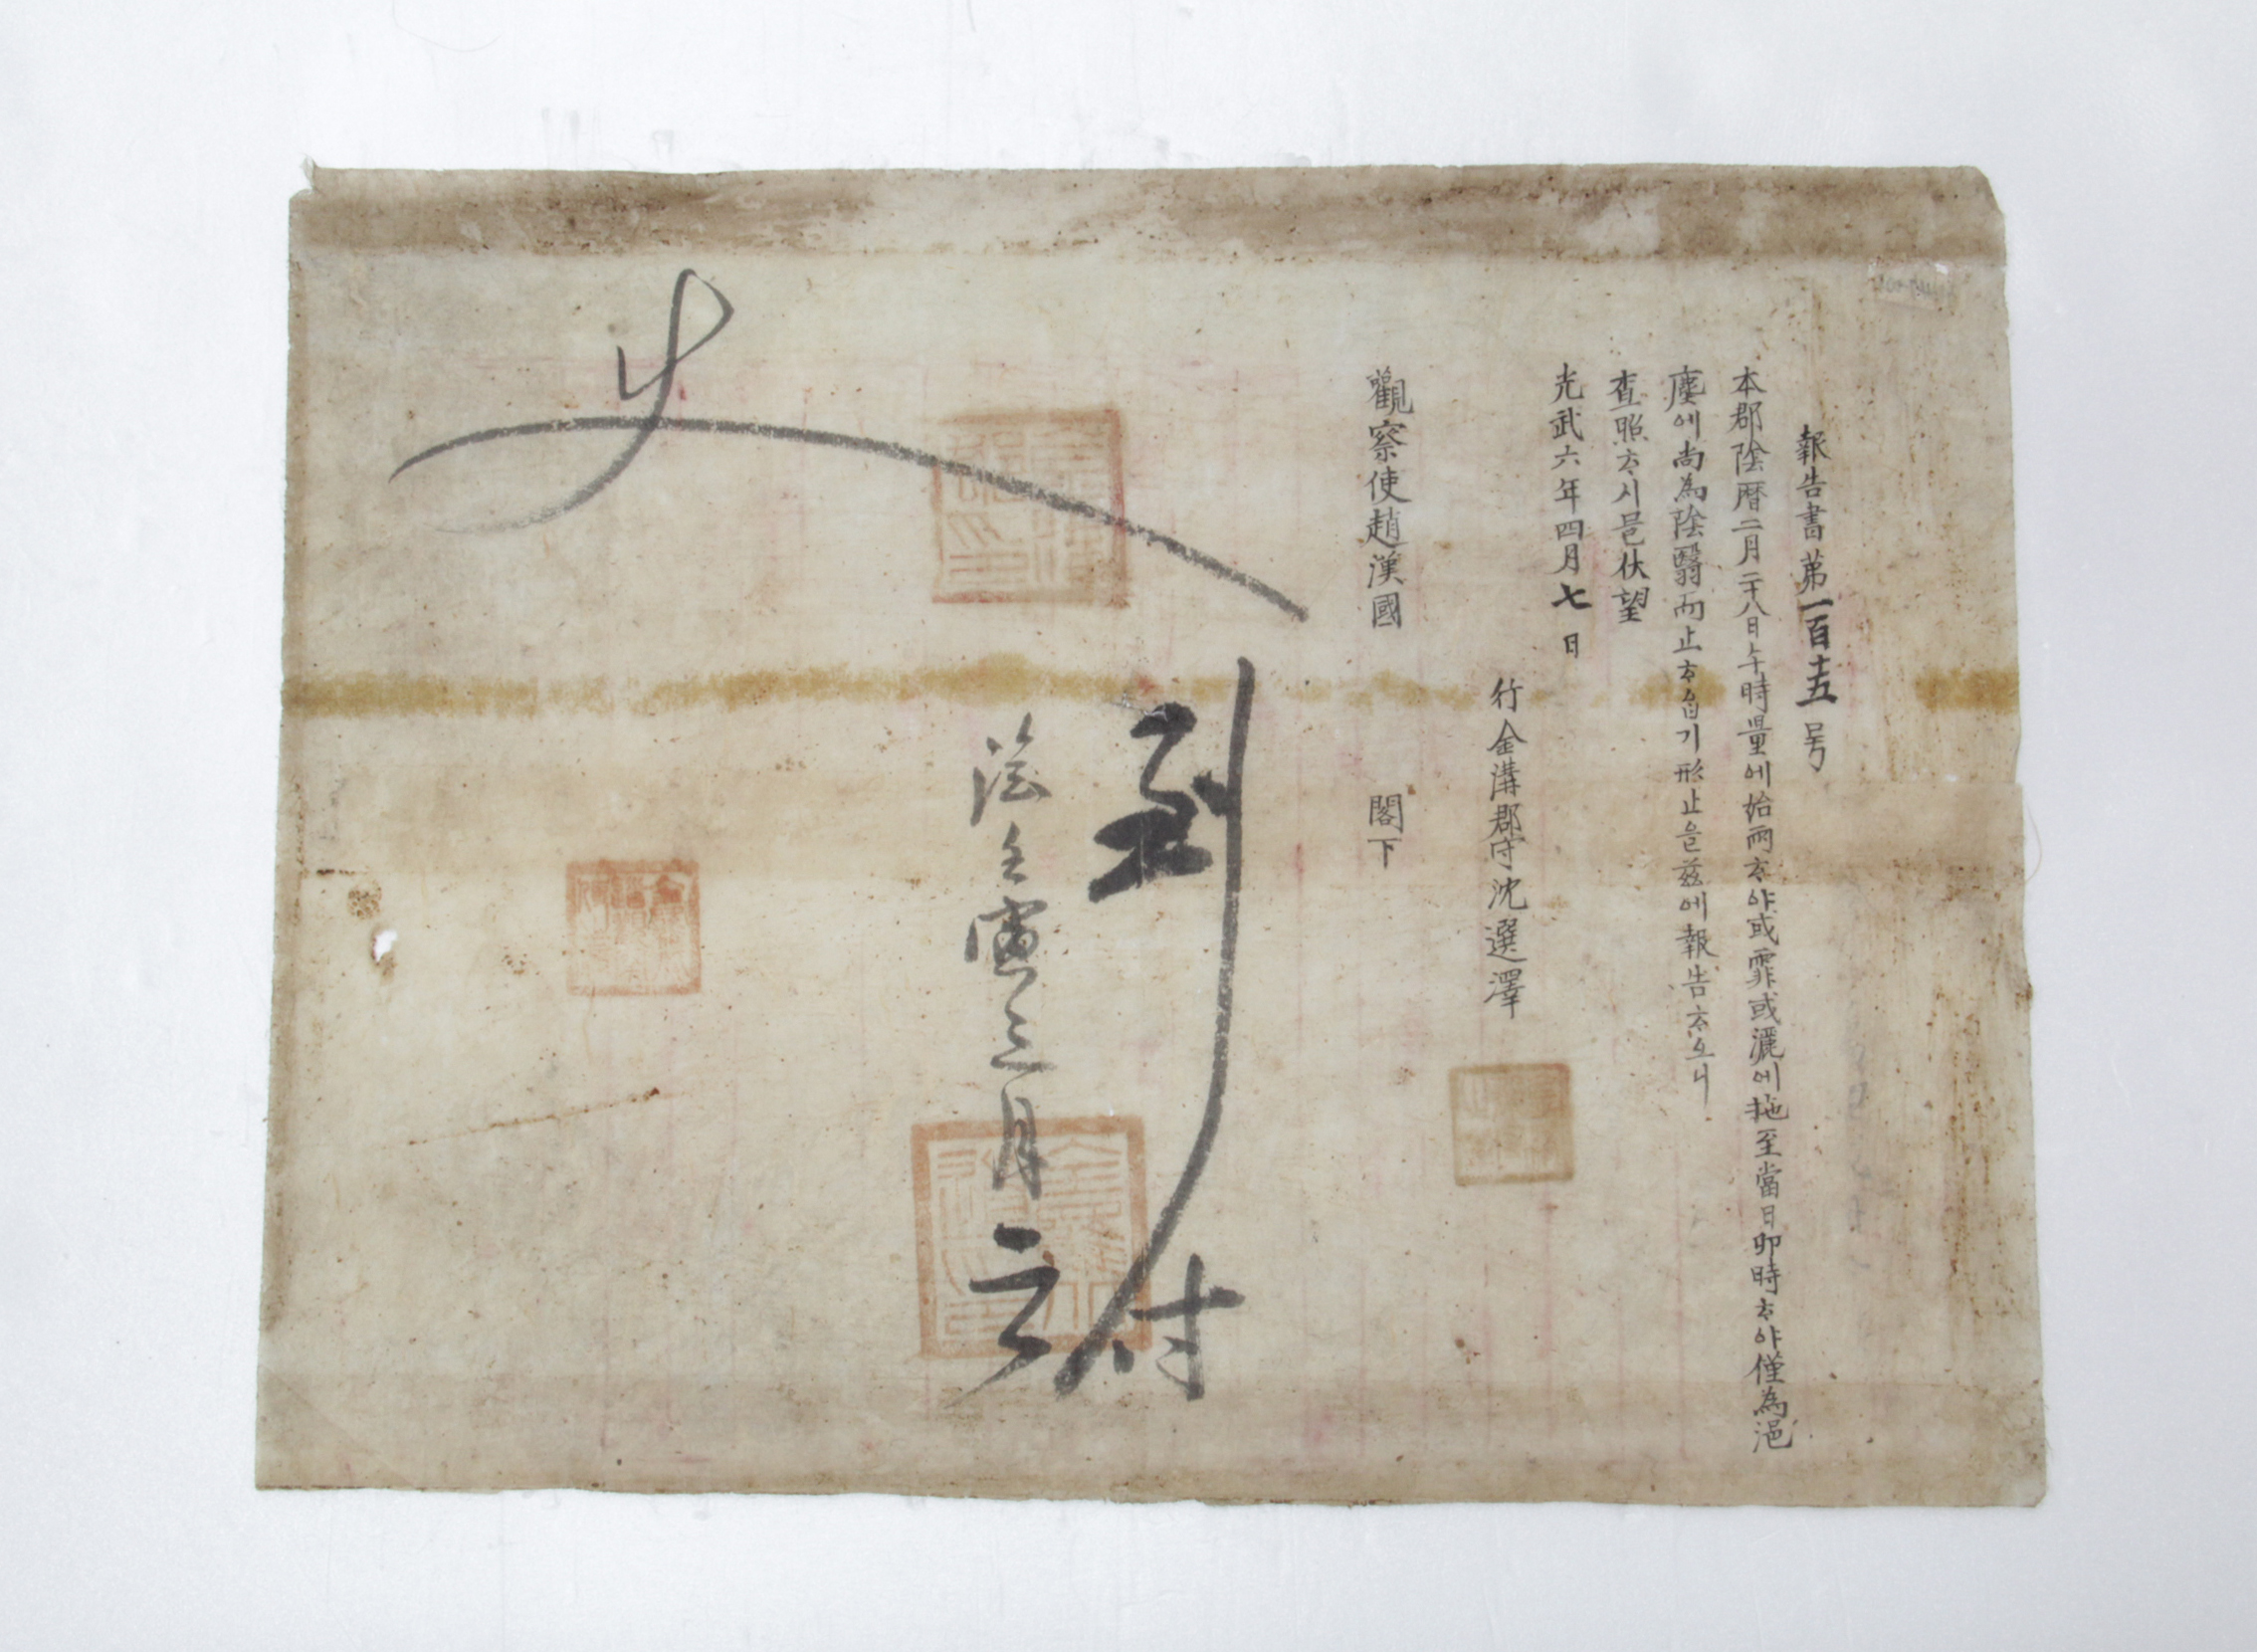 報告書第一百十五号
本郡陰曆二月二十八日午時量에始雨하야或霏或灑에拖至當日卯時하야僅為浥
塵에尙為陰翳而止하ᄋᆞᆸ기形止을玆에報告하오니
查照하시믈伏望
光武六年四月七日
行金溝郡守沈選澤
觀察使趙漢國 閣下
到付
陰壬寅三月 云